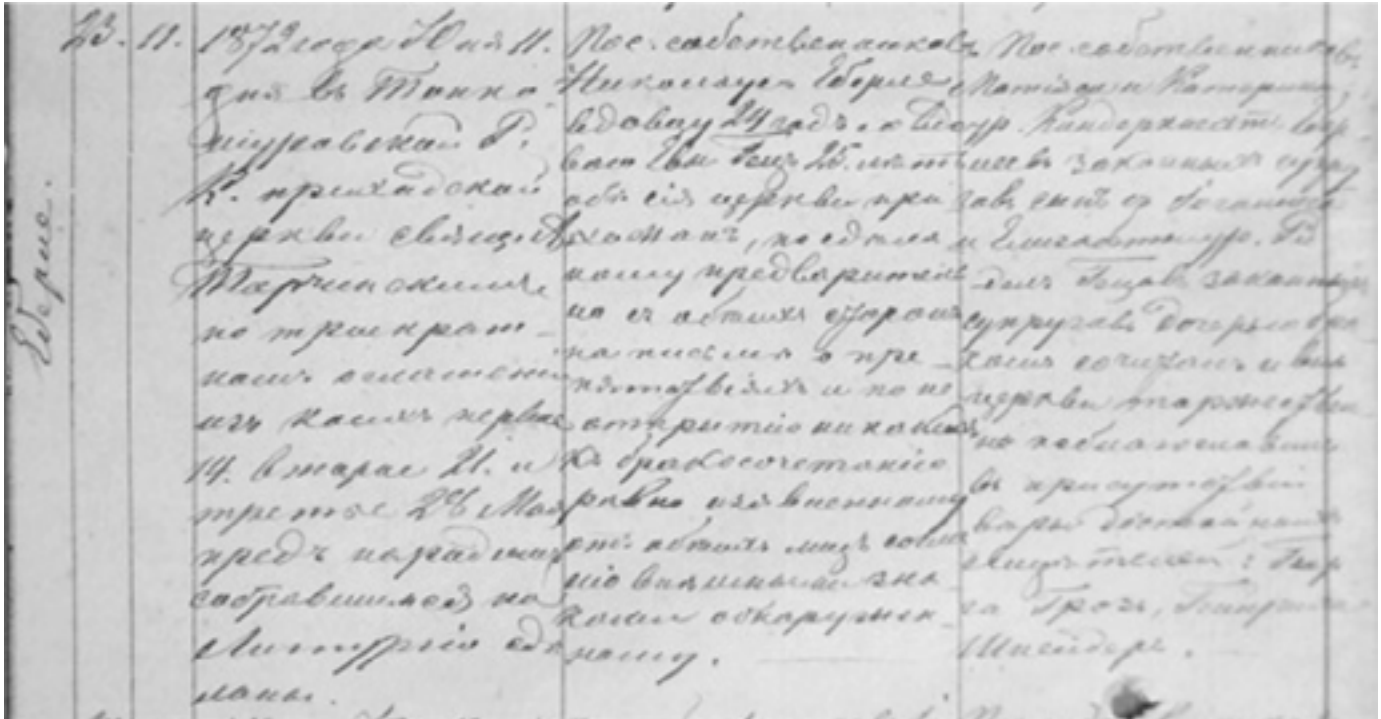 Еберле.
23. 11.
1872 года Юня 11.
дня въ Тонко-
шуровской Р.
К. приходской
церкви священ.
Тарчинскимъ
по троекрат-
номъ оглашенiи
изъ коихъ первое
14. второе 21. и
третье 28 Мая
предъ народомъ
собравшимся на
Литургiю сдѣ-
ланы.
Пос. собственниковъ
Николаусъ Еберле
вдовцу 24 годъ. и вдову
Гец 25. лѣтъ
обѣ сiя церкви при-
хожанъ, по сдѣлан-
ному предваритель-
но съ обѣихъ сторонъ
на письмѣ о пре-
пятствiяхъ и по не
открытiю никакихъ
къ бракосочетанiю
равно изъявленному
отъ обѣихъ лицъ согла-
сiю внѣшными зна-
ками обнаружен-
ному.
Пос. собственниковъ
Матiаса и Катерины,
Еберле
въ законныхъ супру-
говъ сынъ съ
и Елизаветою. Р
Гецовъ законныхъ
супруговъ дочерью бра-
комъ сочеталъ и внѣ
церкви торжествен-
но поблагословилъ
въ присутствiи
вѣры достойныхъ
свидѣтелей: Геор-
га Грозъ, Гейнриха
Шнейдеръ.